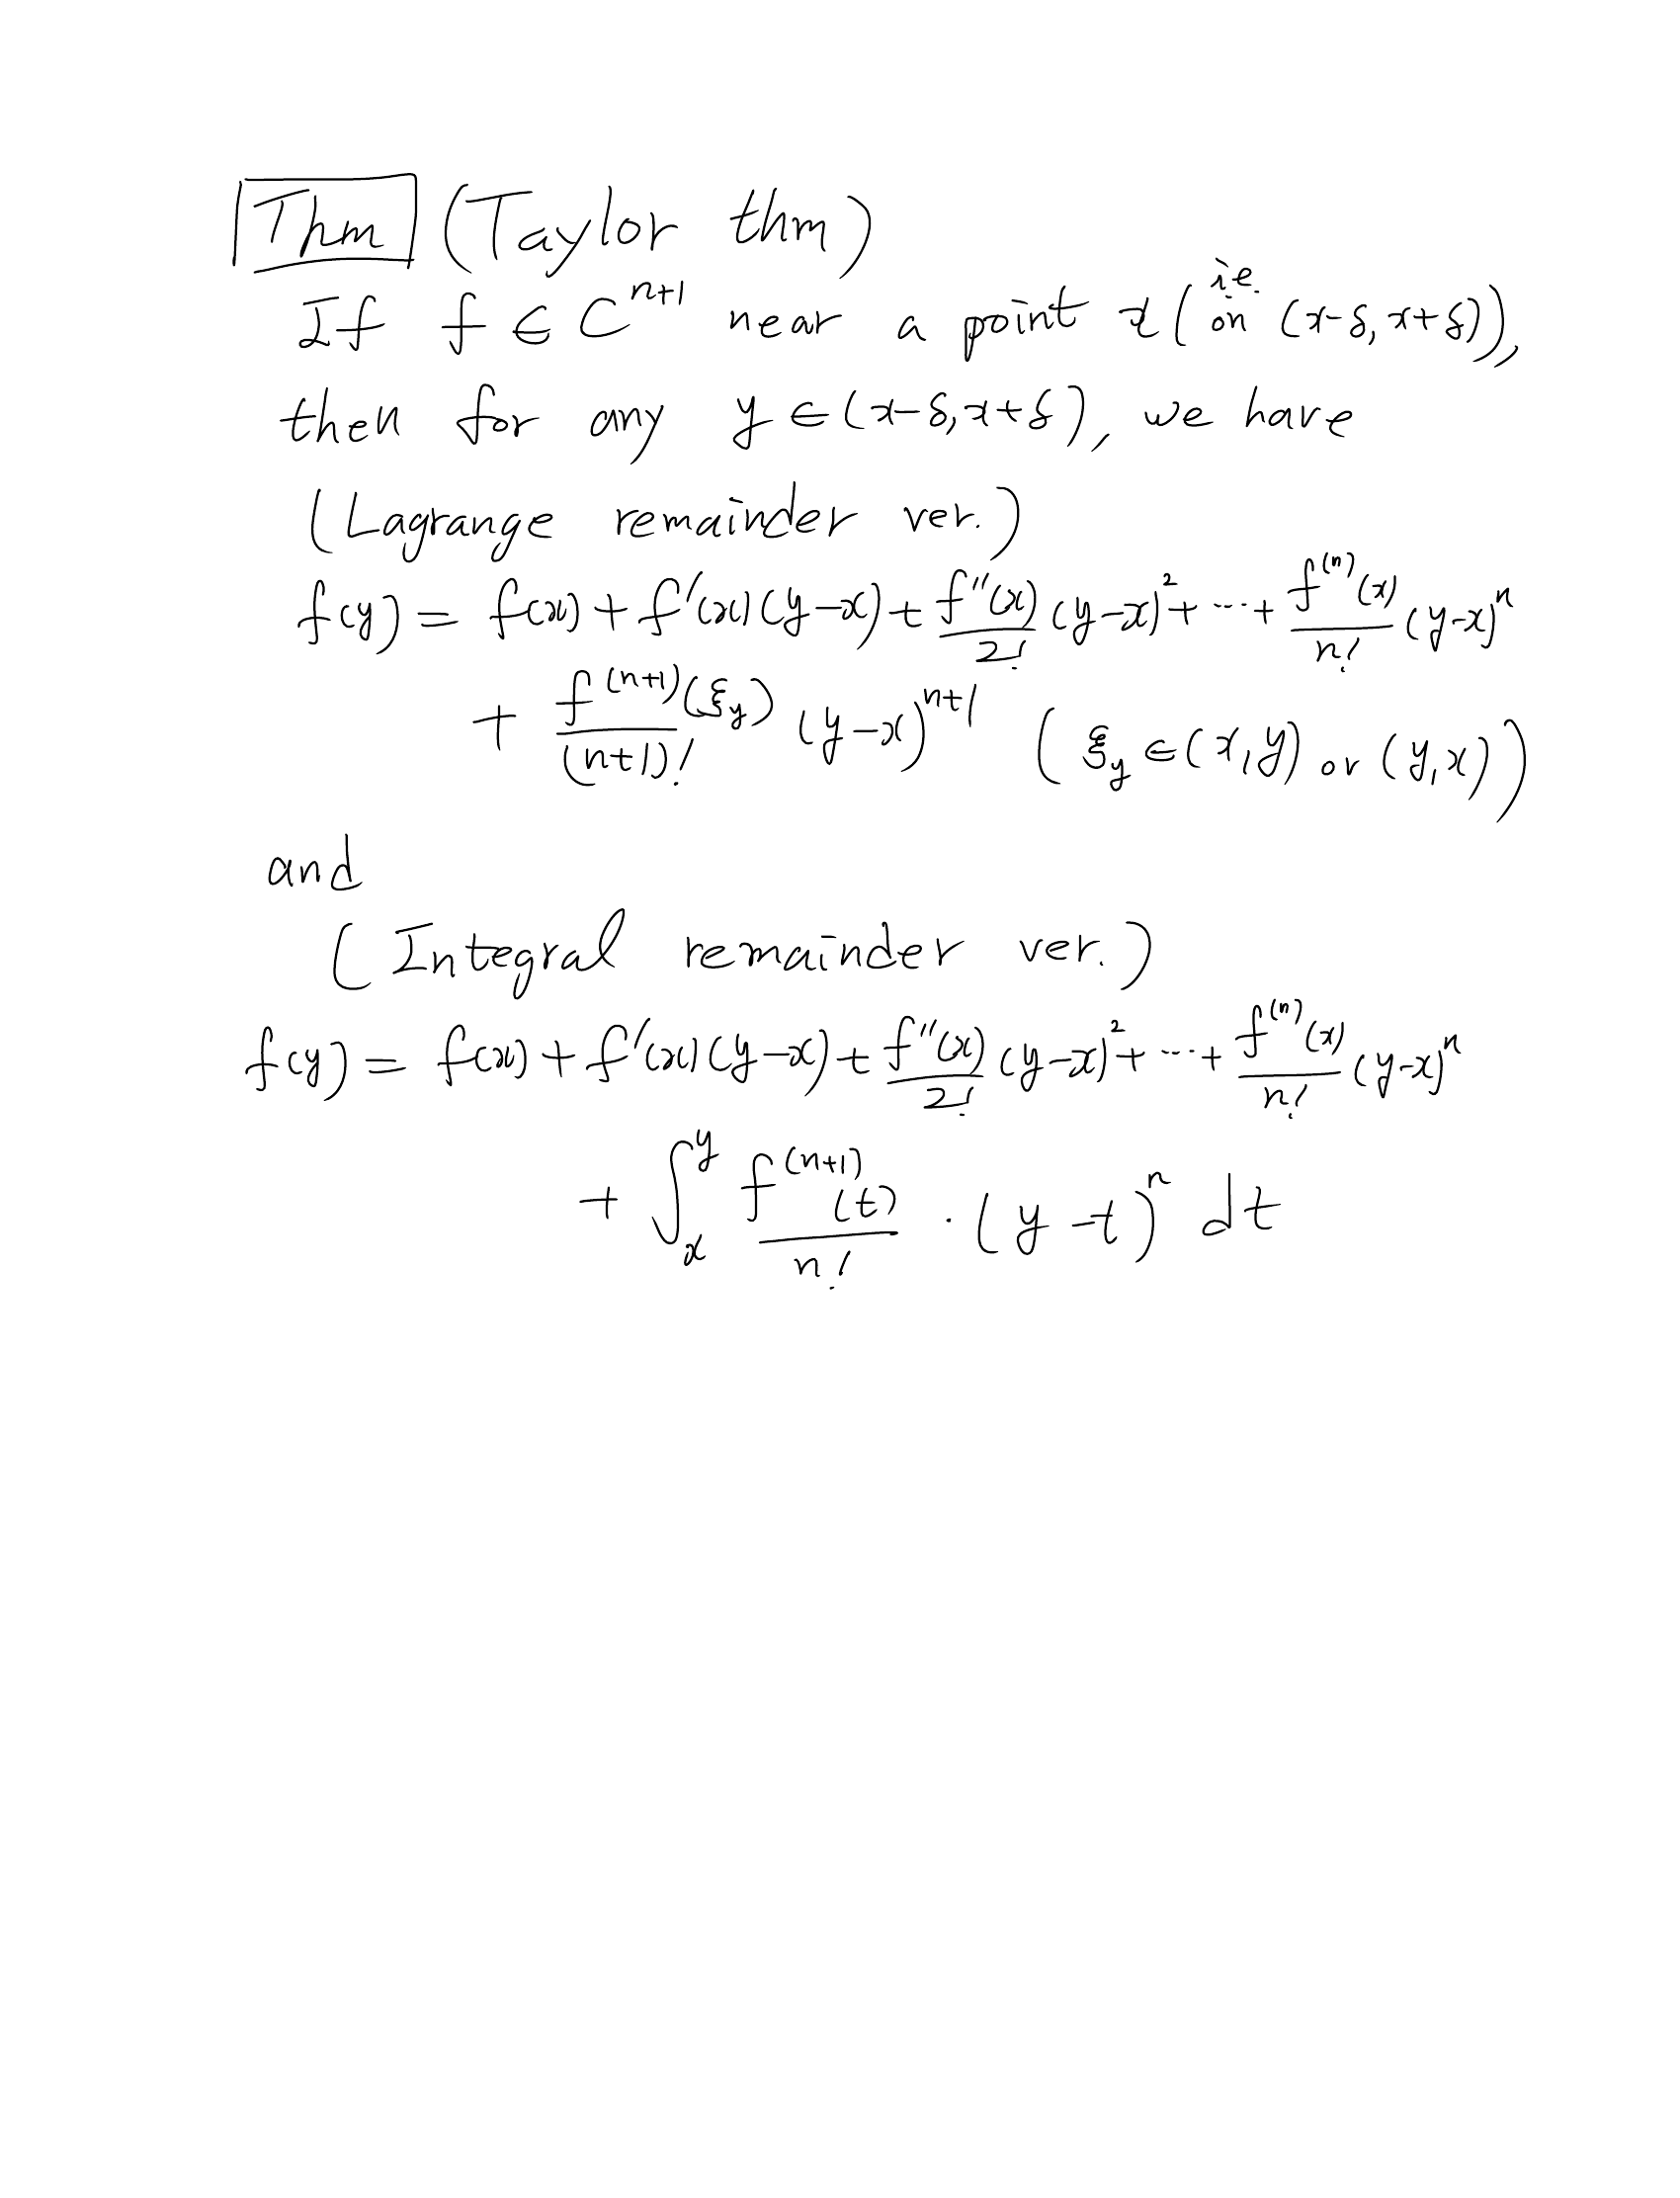 Thm (Taylor thm)
If f ∈ C^{n+1} near a point x (i.e. on (x-δ, x+δ)),
then for any y ∈ (x-δ, x+δ), we have
(Lagrange remainder ver.)
f(y) = f(x) + f'(x)(y-x) + \frac{f''(x)}{2!}(y-x)^2 + ⋯ + \frac{f^{(n)}(x)}{n!}(y-x)^n
+ \frac{f^{(n+1)}(ξ_y)}{(n+1)!}(y-x)^{n+1} (ξ_y ∈ (x,y) or (y,x))
and
(Integral remainder ver.)
f(y) = f(x) + f'(x)(y-x) + \frac{f''(x)}{2!}(y-x)^2 + ⋯ + \frac{f^{(n)}(x)}{n!}(y-x)^n
+ \int_x^y \frac{f^{(n+1)}(t)}{n!} · (y-t)^n dt